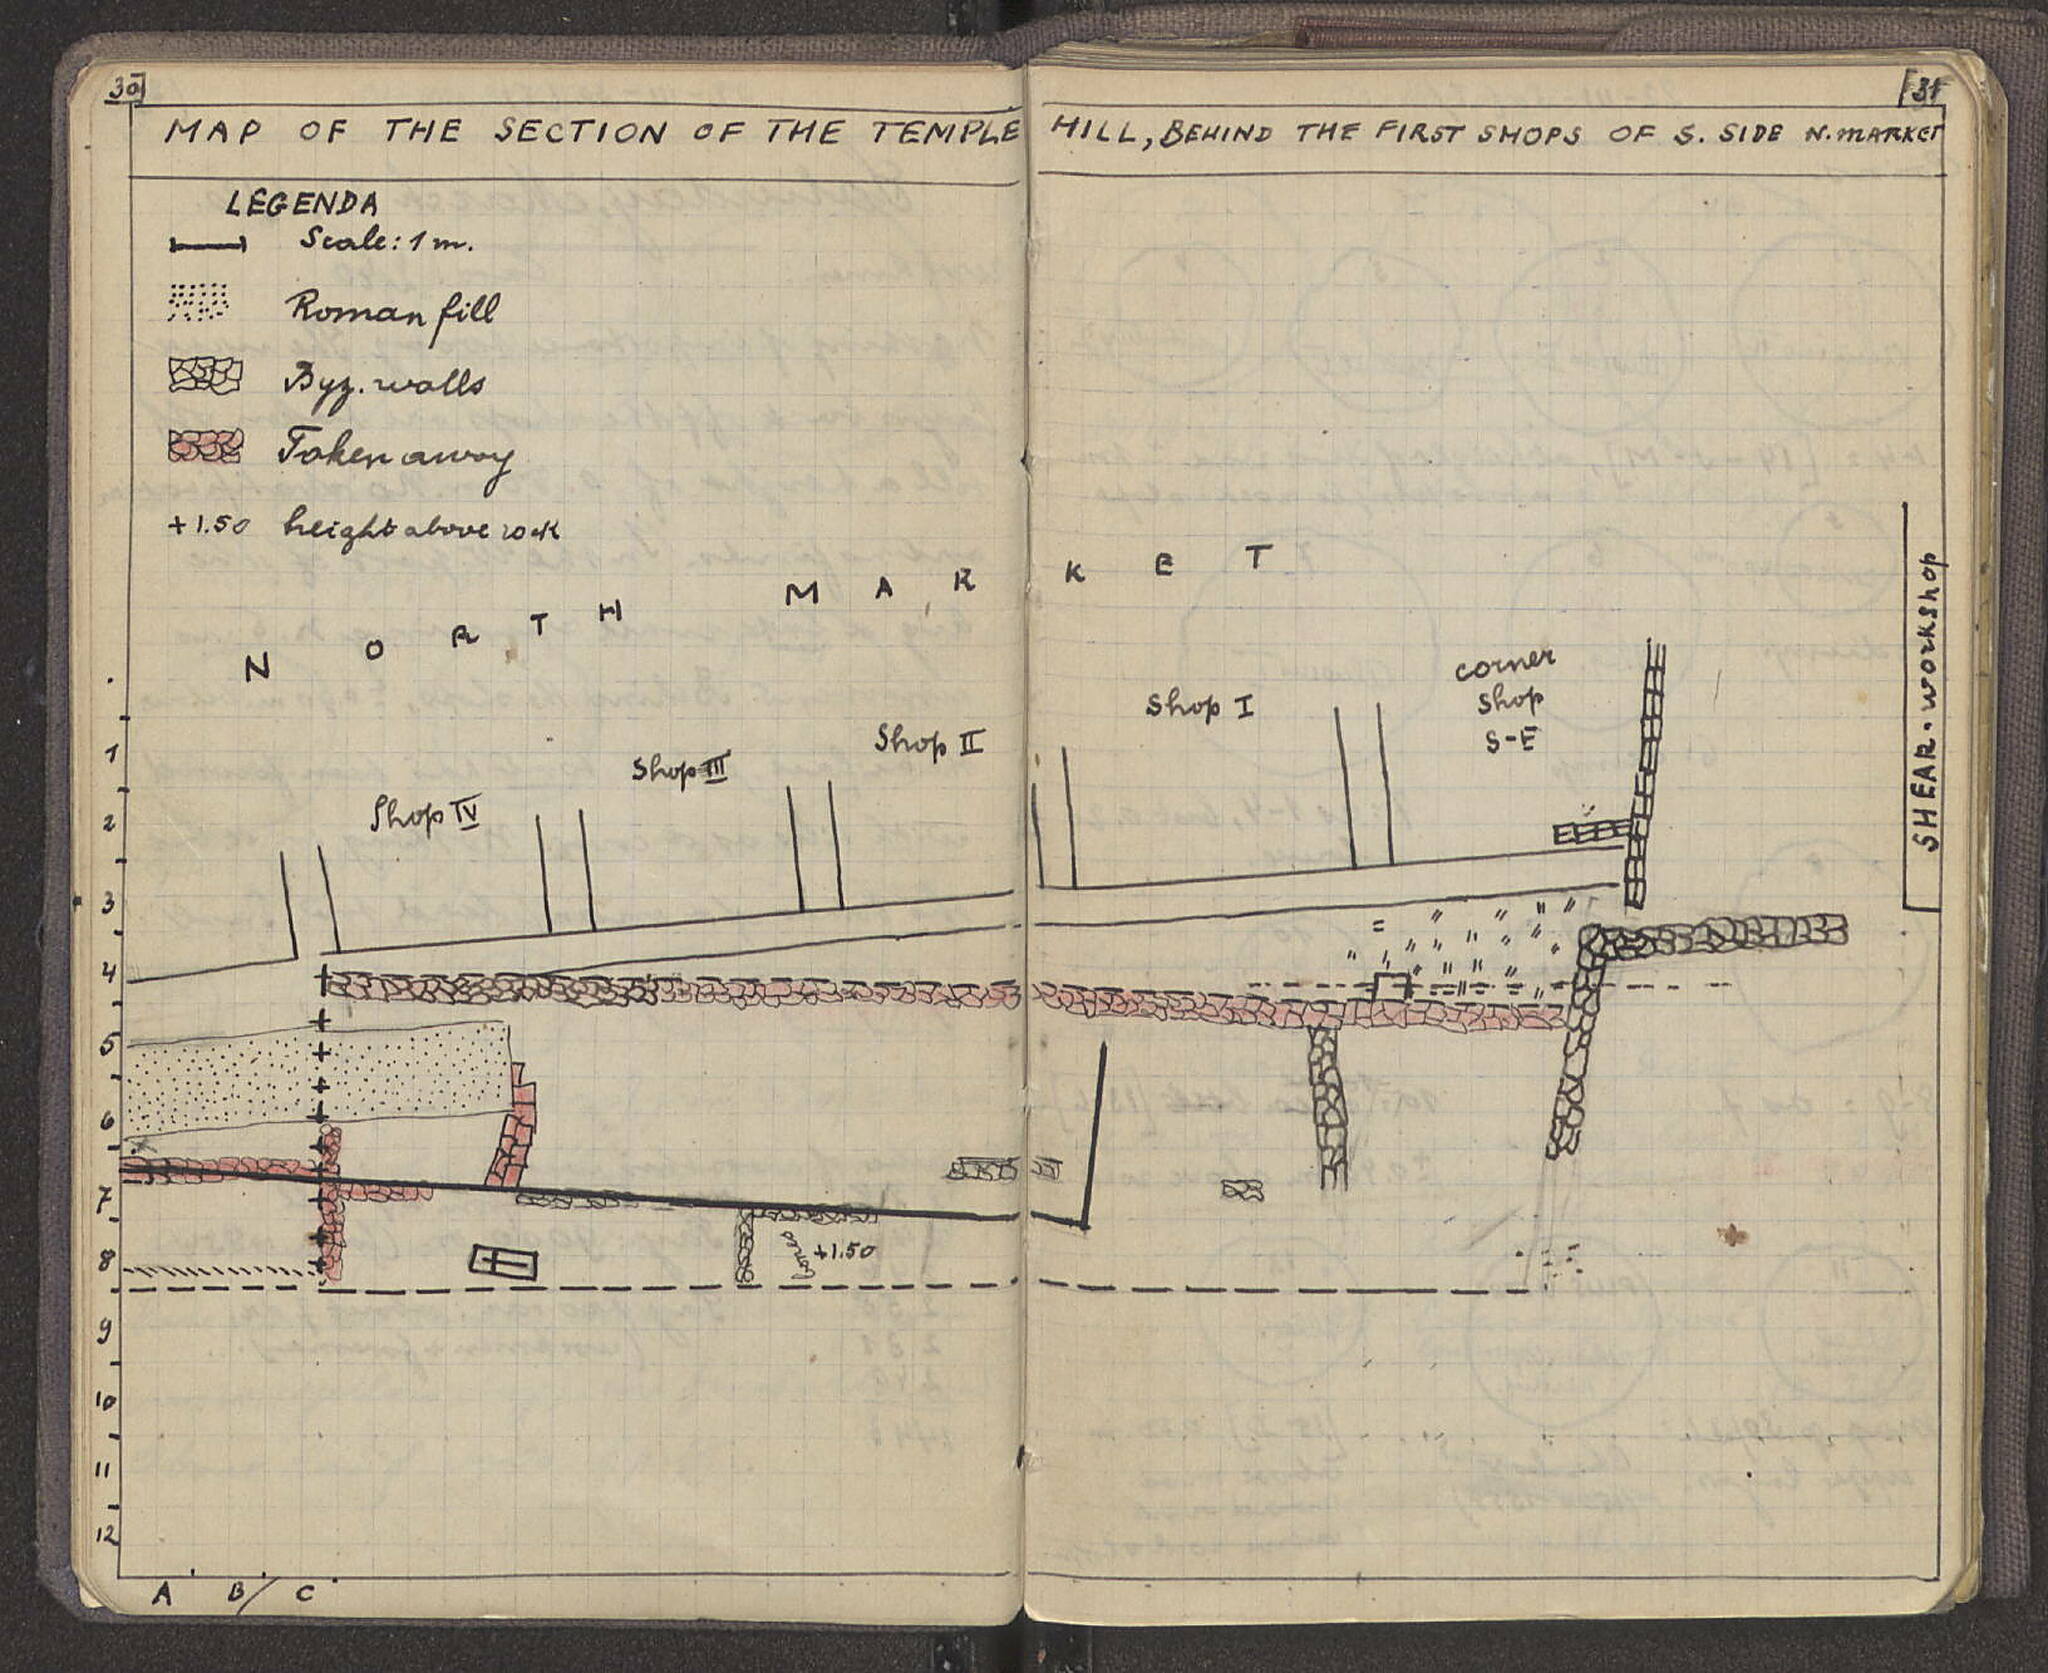 30
31
MAP OF THE SECTION OF THE TEMPLE HILL, BEHIND THE FIRST SHOPS OF S. SIDE N. MARKET
LEGENDA
Scale: 1 m.
Roman fill
Byz. walls
Taken away
+1.50 height above rock
NORTH MARKET
Shop IV
Shop III
Shop II
Shop I
corner
Shop
S-E
SHEAR. workshop
+1.50
1
2
3
4
5
6
7
8
9
10
11
12
A B C